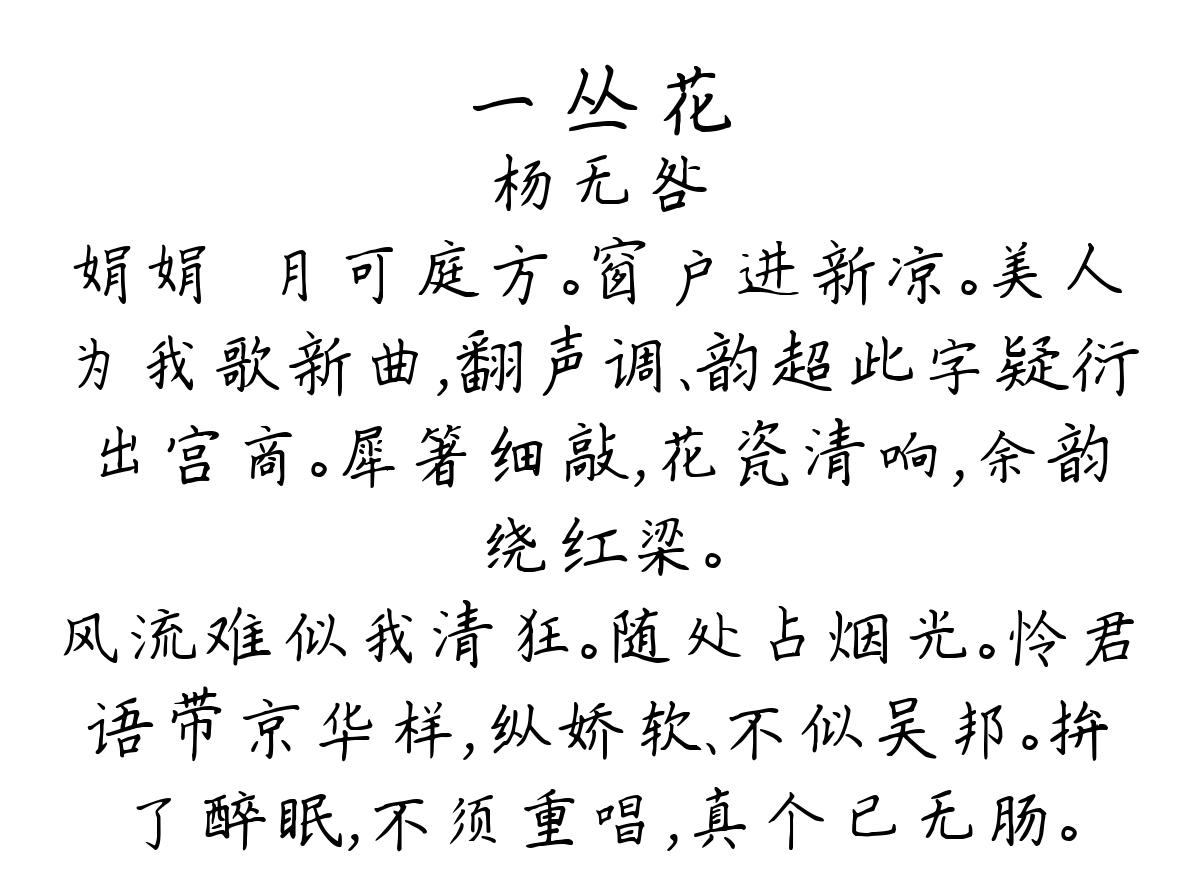 一丛花
杨无咎
娟娟 月可庭方。窗户进新凉。美人
为我歌新曲,翻声调、韵超此字疑衍
出宫商。犀箸细敲,花瓷清响,余韵
绕红梁。
风流难似我清狂。随处占烟光。怜君
语带京华样,纵娇软、不似吴邦。拚
了醉眠,不须重唱,真个已无肠。